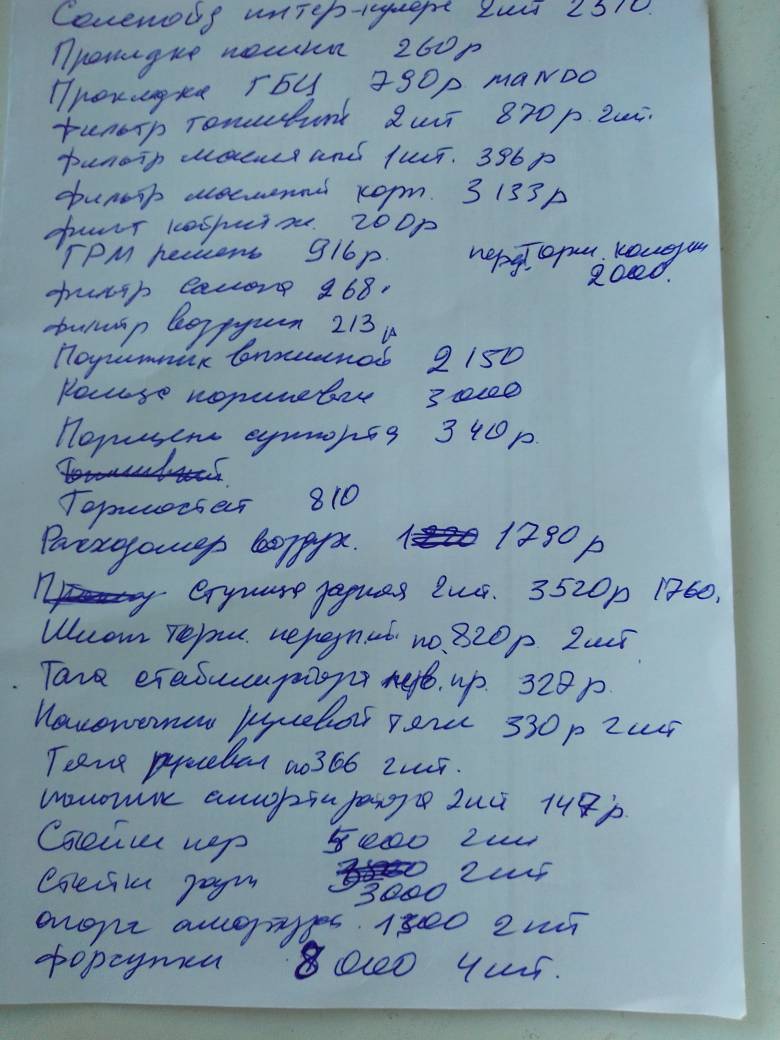 Соленойд интер-кулера 2шт 2510.
Прокладка помпы 260р
Прокладка ГБЦ 790р MANDO
Фильтр топливный 2шт 870р 2шт.
Фильтр масляный 1шт. 396р
Фильтр масляный корп. 3133р
Фильт кабрин ж. 200р
ГРМ ремень 916р. перед. Торм. колодки
2000.
Фильтр салона 268.
Фильтр воздушн 213р
Подшипник выжимной 2150
Кольца поршневые 3000
Поршень суппорта 340р.
Топливный
Тормостат 810
Расходомер воздух. 1790р
Ступица задняя 2шт. 3520р 1760.
Шланг торм. передний по 820р 2шт
Тяга стабилизатора лев. пр. 327р.
Наконечник рулевой тяги 330р 2шт
Тяга рулевая по 366 2шт.
пыльник амортизатора 2шт 147р.
Стойки пер 5000 2шт
Стойки задн 2шт
3000
опора амортиз. 1300 2шт
Форсунки 8000 4шт.